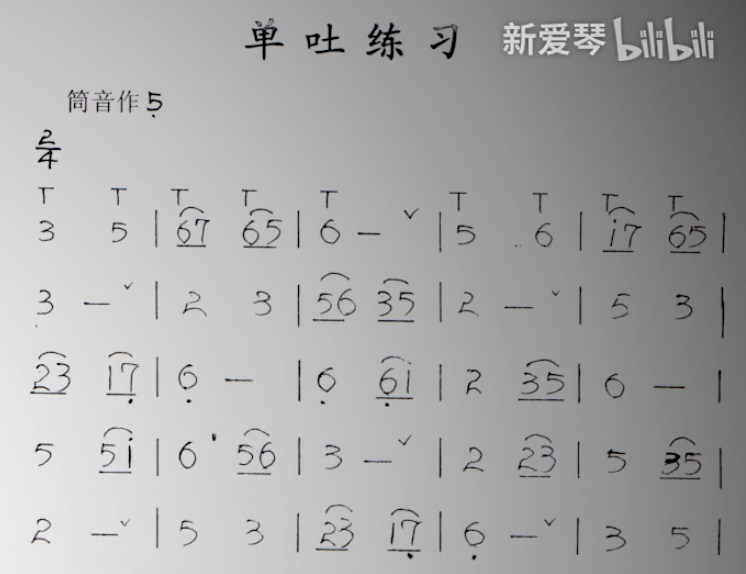 单吐练习 新爱琴 bilibili
筒音作5̣
2/4
T T T T T T T T T
3 5 | 67 65 | 6 – ˅ | 5 6 | i7 65 |
3 – ˅ | 2 3 | 56 35 | 2 – ˅ | 5 3 |
23 17̣ | 6̣ – | 6̣ 6̣1 | 2 35 | 6 – |
5 5i | 6· 56 | 3 – ˅ | 2 23 | 5 35 |
2 – ˅ | 5 3 | 23 17̣ | 6̣ – ˅ | 3 5 |